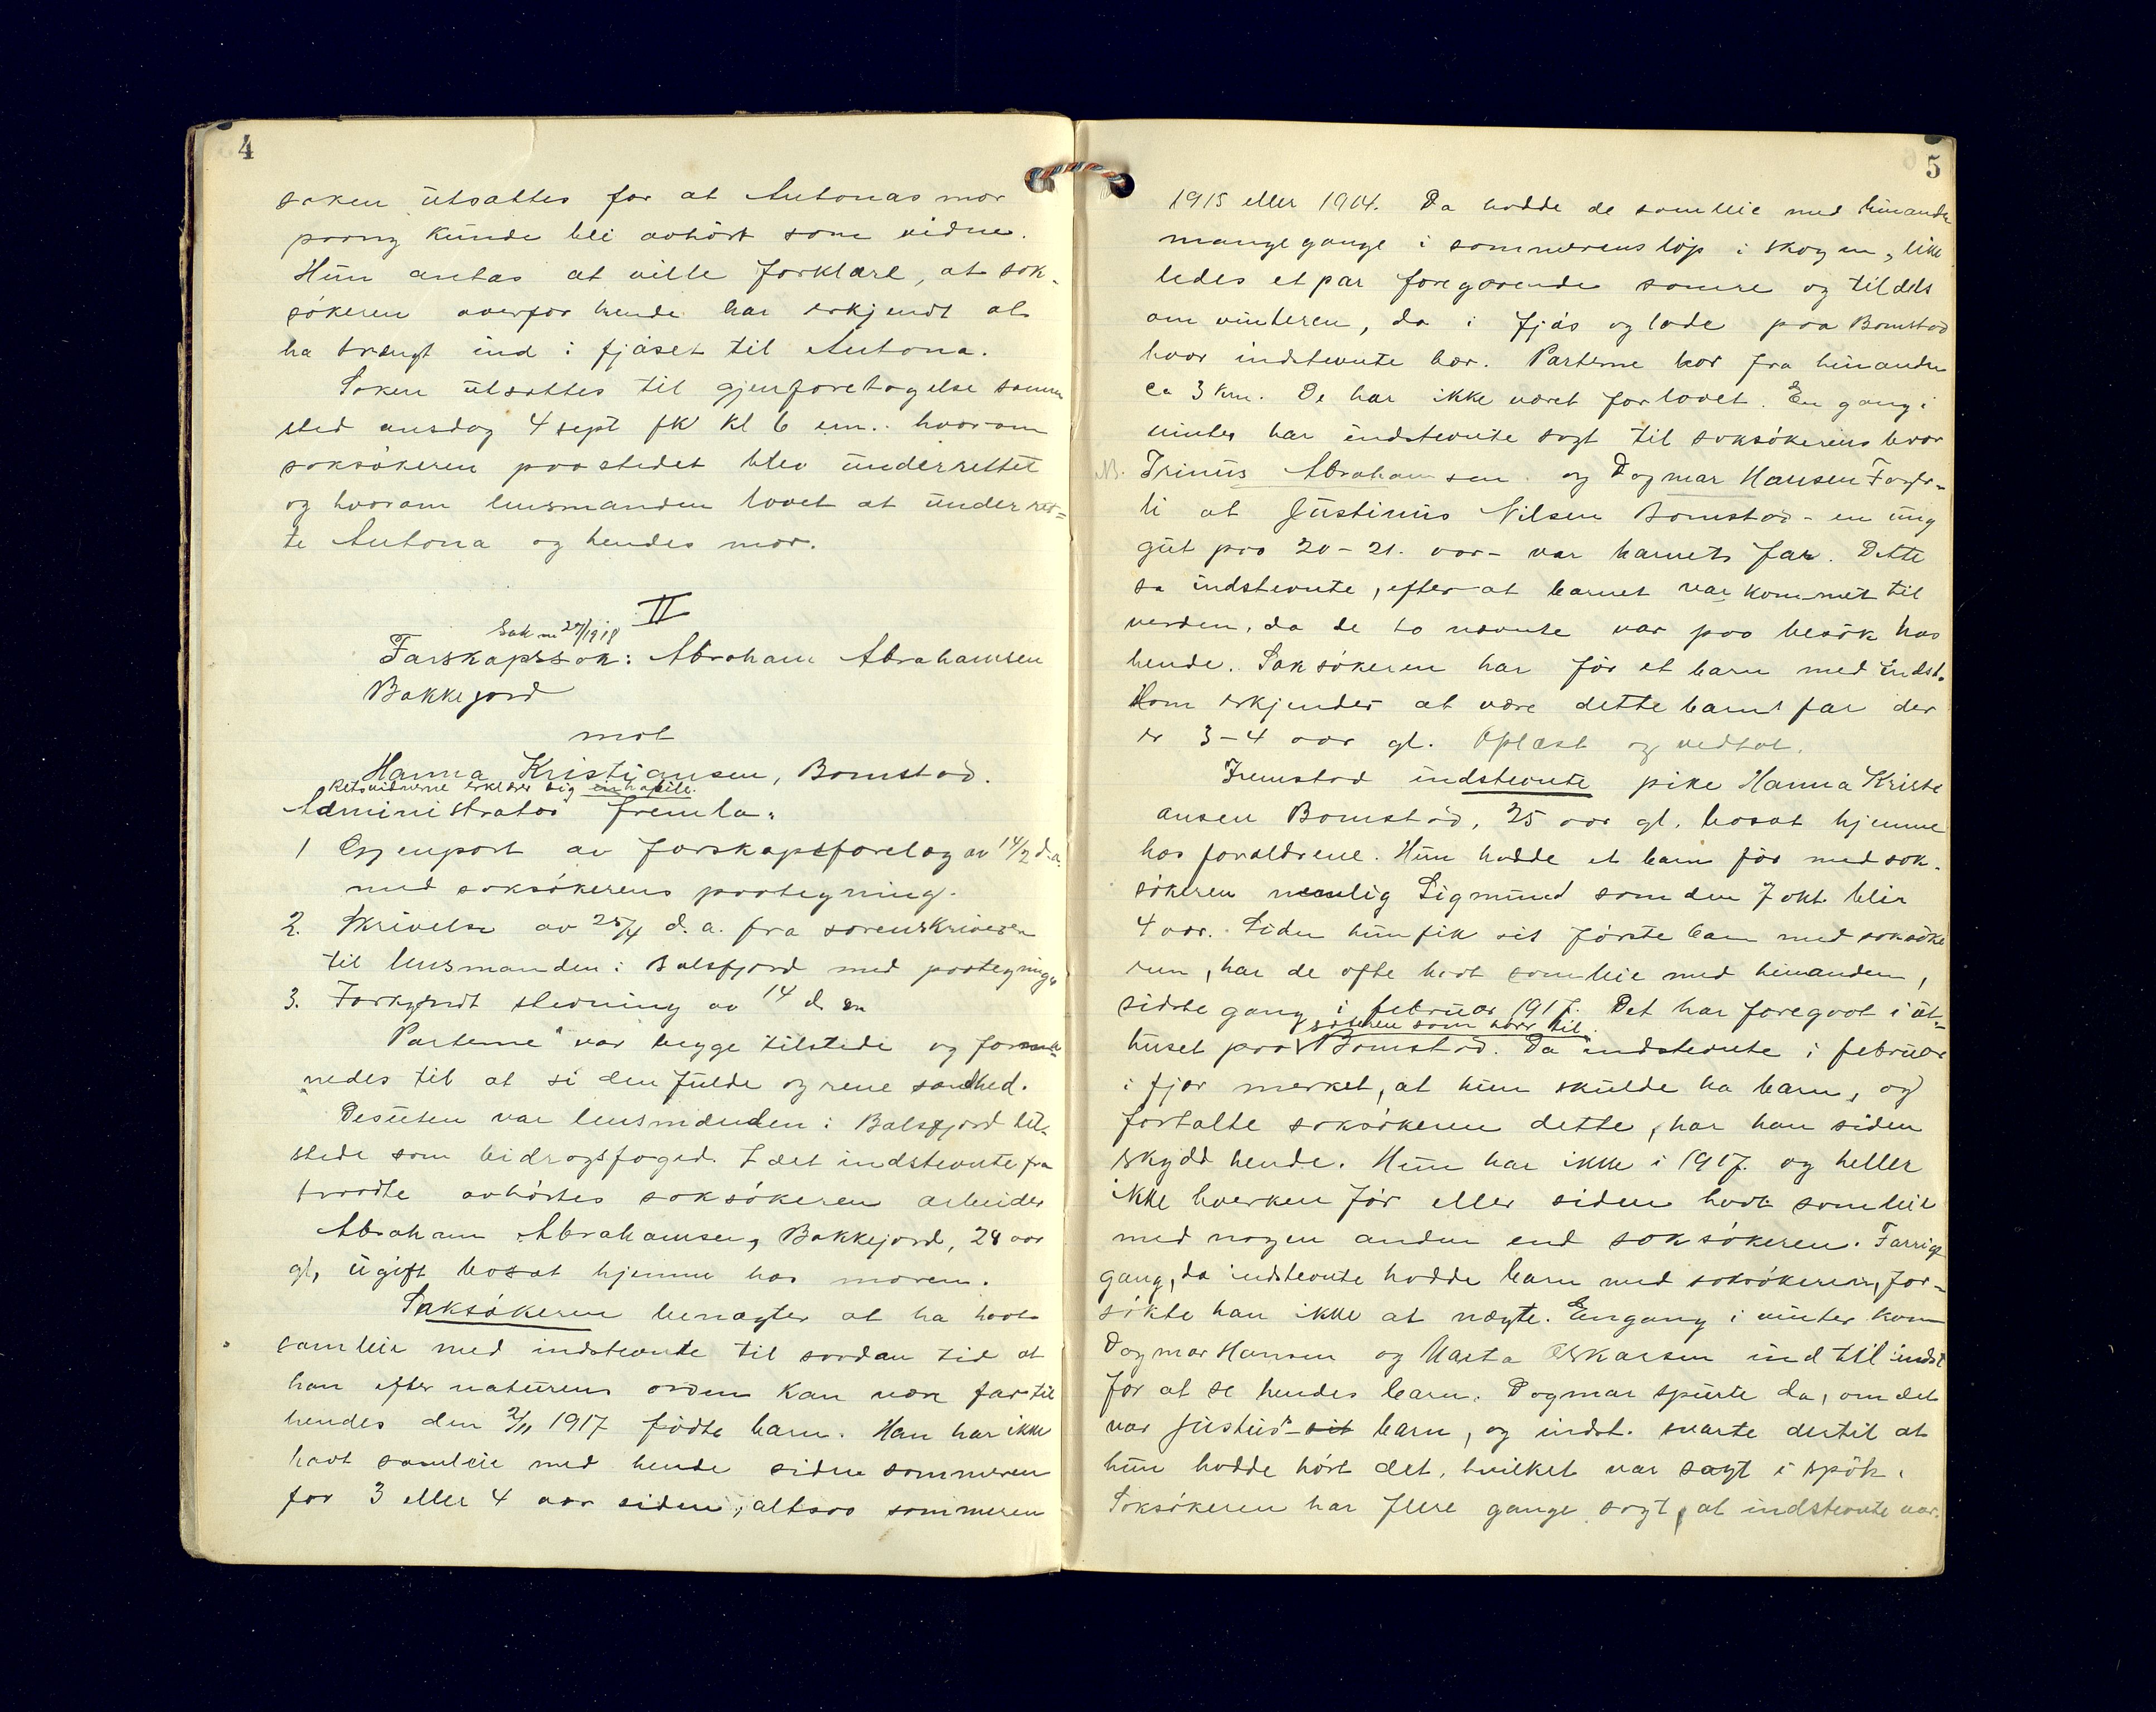 4
saken utsattes for at Antonas mor
paany kunde bli avhört som vidne.
Hun antas at ville forklare, at sak-
sökeren overfor hende har erkjendt at
ha trængt ind i fjöset til Antona.
Saken utsattes til gjenforetagelse samme
sted onsdag 4 sept fk kl 6 em.. hvorom
saksökeren paa stedet blev underrettet
og hvorom lensmanden lovet at underret=
te Antona og hendes mor.
II
Sak nr 27/1918
Farskapssak: Abraham Abrahamsen
Bakkejord
mot
Hanna Kristiansen, Bomstad.
Retsvidnerne erklærer sig inhabile.
Administrator fremla:
1 Gjenpart av farskapsforelæg av 14/2 d.a.
med saksökerens paategning.
2. Skrivelse av 25/4 d. a. fra sorenskriveren
til lensmanden i Balsfjord med paategning
3. Forkyndt stevning av 14 d m
Parterne var begge tilstede og forma=
nedes til at si den fulde og rene sandhed.
Desuten var lensmanden i Balsfjord til-
stede som bidragsfoged. I det indstevnte fra
traadte avhörtes saksökeren arbeider
Abraham Abrahamsen, Bakkejord, 28 aar
gl, ugift bosat hjemme hos moren.
Saksökeren benægter at ha havt
samleie med indstevnte til saadan tid at
han efter naturens orden kan være far til
hendes den 2/11 1917 födte barn. Han har ikke
havt samleie med hende siden sommeren
for 3 eller 4 aar siden, altsaa sommeren
5
1915 eller 1914. Da hadde de samleie med hinanden
mange gange i sommerens löp i skogen, like
ledes et par foregaaende somre og tildels
om vinteren, da i fjös og lade paa Bomstad
hvor indstevnte bor. Parterne bor fra hinanden
ca 3 km. De har ikke været forlovet. En gang i
vinter har indstevnte sagt til saksökerens bror
NB. Trinus Abrahamsen og Dagmar Hansen Fagr-
li at Justinus Nilsen Bomstad - en ung
gut paa 20-21. aar- var barnets far. Dette
sa indstevnte, efter at barnet var kommet til
verden, da de to nævnte var paa besök hos
hende. Saksökeren har för et barn med indst.
Han erkjender at være dette barns far der
er 3-4 aar gl. Oplæst og vedtat.
Fremstod indstevnte pike Hanna Kristi
ansen Bomstad, 25 aar gl. bosat hjemme
hos forældrene. Hun hadde et barn för med sak-
sökeren nemlig Sigmund som den 7 okt. blir
4 aar. Siden hun fik sit förste barn med saksöke
ren, har de ofte havt samleie med hinanden,
sidste gang i februar 1917. Det har foregaat i ut-
som hörer til
huset paa Bomstad. Da indstevnte i februar
i fjor merket, at hun skulde ha barn, og
fortalte saksökeren dette, har han siden
skydd hende. Hun har ikke i 1917. og heller
ikke hverken för eller siden havt samleie
med nogen anden end saksökeren. Forrige
gang, da indstevnte hadde barn med saksökeren, for-
sökte han ikke at nægte. Engang i vinter kom
Dagmar Hansen og Marta Oskarsen ind til indst
for at se hendes barn. Dagmar spurte da, om det
var Justius' sit barn, og indst. svarte dertil at
hun hadde hört det, hvilket var sagt i spök.
Saksökeren har flere gange sagt, at indstevnte var